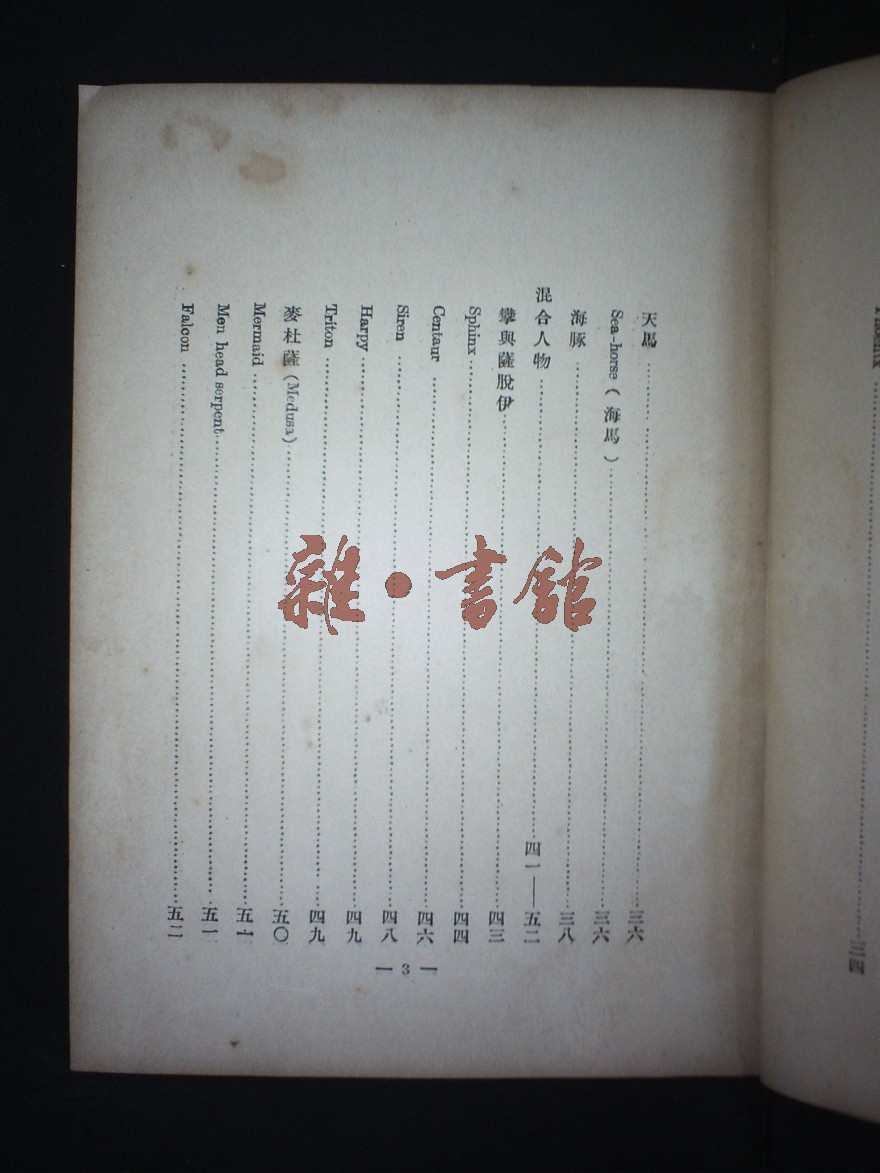 天馬 三六
Sea-horse (海馬) 三六
海豚 三八
混合人物 四一——五二
攣與薩脫伊 四三
Sphinx 四四
Centaur 四六
Siren 四八
Harpy 四九
Triton 四九
麥杜薩 (Medusa) 五〇
Mermaid 五一
Men head serpent 五一
Falcon 五二
— 3 —
雜·書館